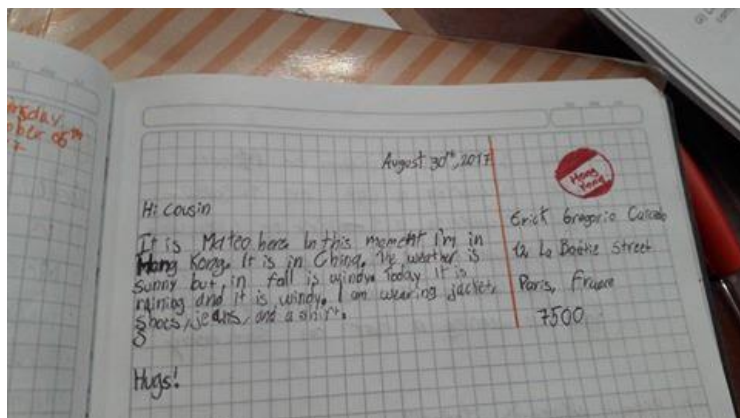 August 30th, 2017
Hong
Kong
Hi cousin
It is Mateo here. In this moment I'm in
Hong Kong. It is in China. The weather is
sunny but, in fall is windy. Today It is
raining and it is windy. I am wearing jacket,
shoes, jeans, and a shirt.
Hugs!
Erick Gregorio
12 La Boétie street
Paris, France
7500